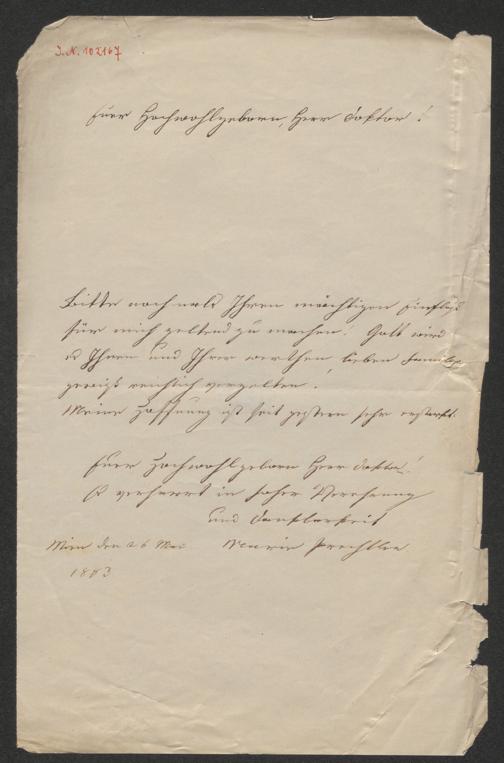 I.N. 102167
Euer Hochwohlgeborn, Herr Doktor!
Bitte nochmals Ihren mächtigen Einfluß
für mich geltend zu machen! Gott wird
es Ihnen und Ihrer werthen lieben Familie
gewiß reichlich vergelten!
Meine Hoffnung ist seit gestern sehr erstarkt.
Euer Hochwohlgeborn Herr Doktor!
Es verharrt in hoher Verehrung
und Dankbarkeit
Wien den 26 Mai Marie